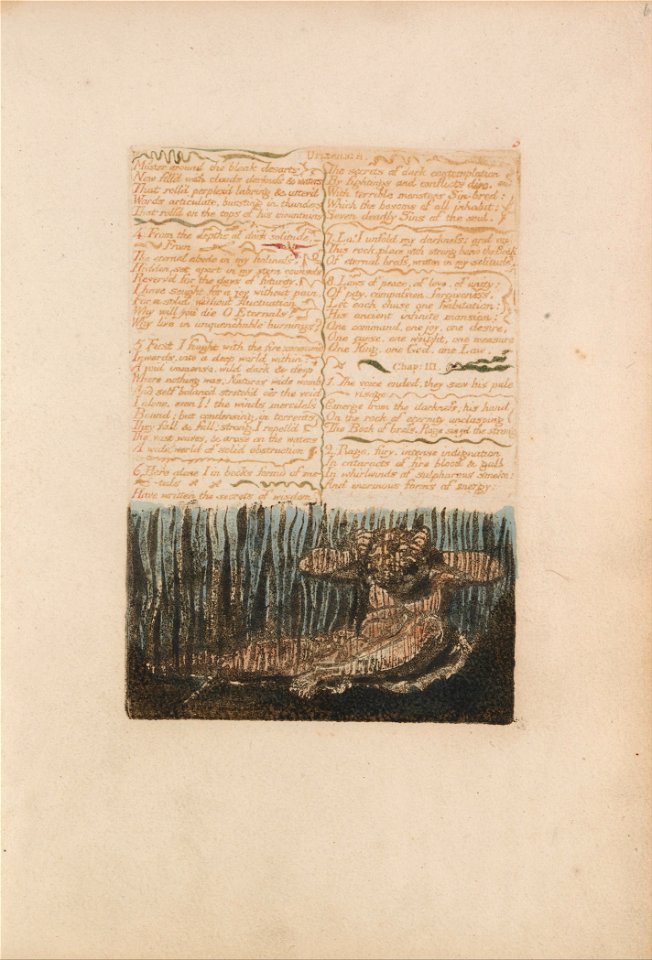 URIZEN: II.
Muster around the bleak desarts
Now fill'd with clouds, darkness & waters
That roll'd perplex'd labring & utter'd
Words articulate, bursting in thunders
That roll'd on the tops of his mountains
4. From the depths of dark solitude.
From
The eternal abode in my holiness,
Hidden, set apart in my stern counsels
Reserv'd for the days of futurity,
I have sought for a joy without pain,
For a solid without fluctuation
Why will you die O Eternals?
Why live in unquenchable burnings?
5. First I fought with the fire; consum'd
Inwards, into a deep world within:
A void immense, wild dark & deep,
Where nothing was; Natures wide womb
And self balanc'd stretch'd o'er the void
I alone, even I! the winds merciless
Bound; but condensing, in torrents
They fall & fall; strong I repell'd
The vast waves, & arose on the waters
A wide world of solid obstruction
6. Here alone I in books formd of me-
-tals
Have written the secrets of wisdom
The secrets of dark contemplation
By fightings and conflicts dire,
With terrible monsters Sin-bred:
Which the bosoms of all inhabit;
Seven deadly Sins of the soul.
7. Lo! I unfold my darkness: and on
This rock, place with strong hand the Book
Of eternal brass, written in my solitude.
8. Laws of peace, of love, of unity:
Of pity, compassion, forgiveness.
Let each chuse one habitation:
His ancient infinite mansion:
One command, one joy, one desire,
One curse, one weight, one measure
One King, one God, one Law.
Chap: III.
1. The voice ended, they saw his pale
visage
Emerge from the darkness; his hand
On the rock of eternity unclasping
The Book of brass. Rage siez'd the strong
2. Rage, fury, intense indignation
In cataracts of fire blood & gall
In whirlwinds of sulphurous smoke:
And enormous forms of energy;